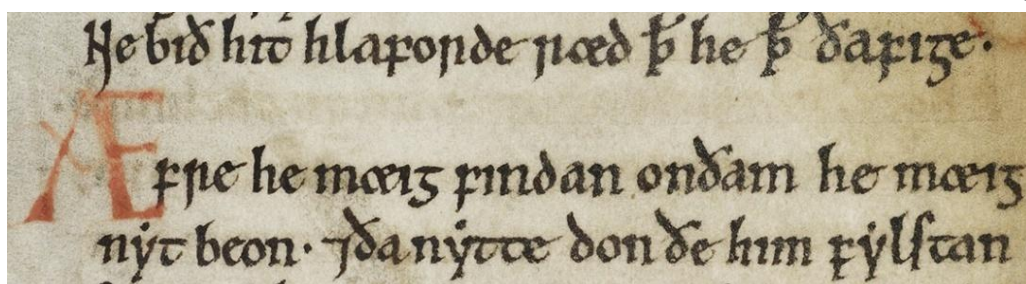 Ne bið hit hlaforde ræd ꝥ he ꝥ ðafige·
Æfre he mæig findan onðam he mæig
nẏt beon· ⁊ða nẏtte don ðe him fẏlſtan